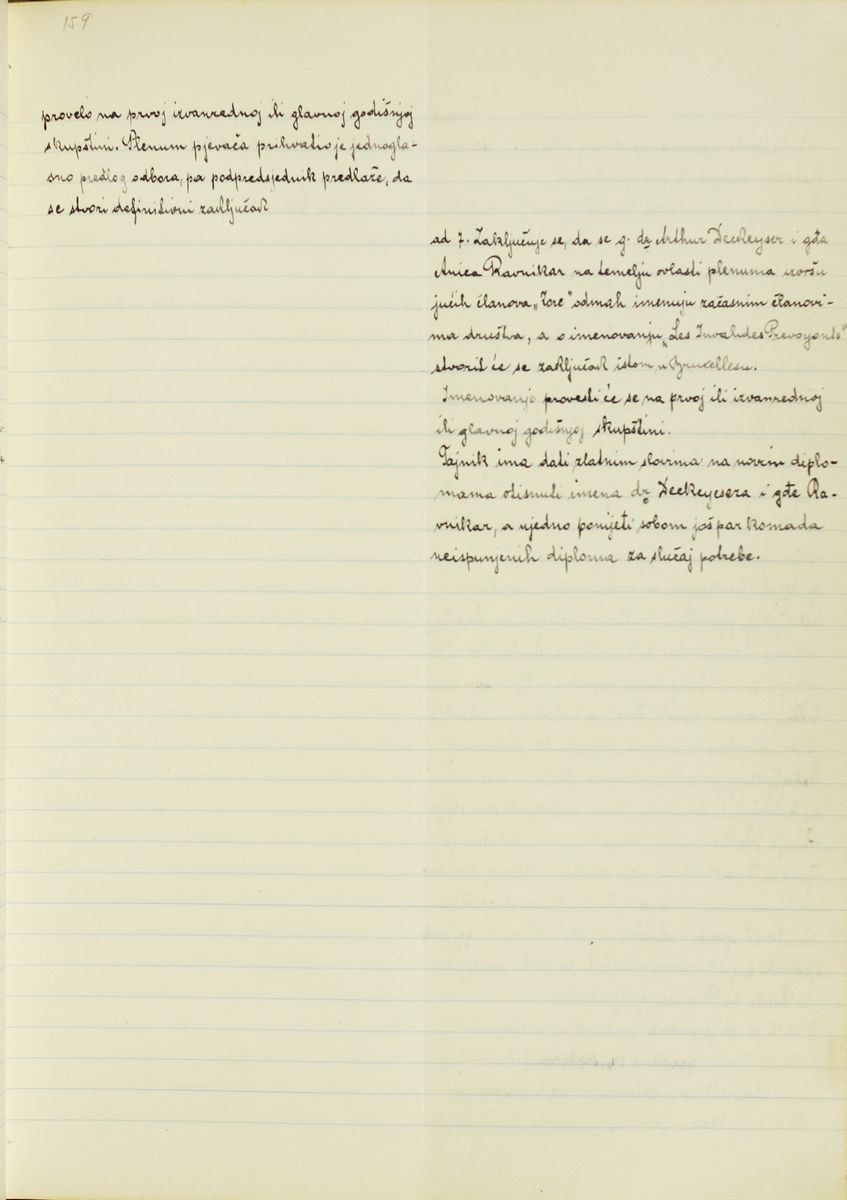 159
provelo na prvoj izvanrednoj ili glavnoj godišnjoj
skupštini. Plenum pjevača prihvatio je jednogla-
sno predlog odbora, pa podpredsjednik predlaže, da
se stvori definitivni zaključak
ad 7. Zaključuje se, da se g. dr Arthur Deckeyser i gđa
Anica Ravnikar na temelju ovlasti plenuma izvršu
jućih članova „Zore" odmah imenuju začasnim članovi-
ma društva, a o imenovanju „Les Invalides Prevoyants"
stvorit će se zaključak istom u Bruxellesu.
Imenovanje provesti će se na prvoj ili izvanrednoj
ili glavnoj godišnjoj skupštini.
Tajnik ima dati zlatnim slovima na novim diplo-
mama otisnuti imena dr Deckeysera i gđe Ra-
vnikar, a ujedno ponijeti sobom još par komada
neispunjenih diploma za slučaj potrebe.